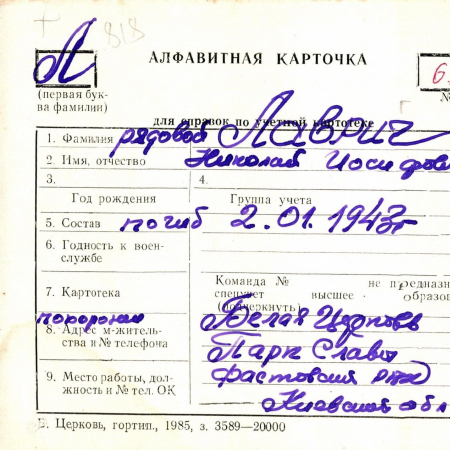 Л 818
АЛФАВИТНАЯ КАРТОЧКА
6
(первая бук-
ва фамилии)
№
для справок по учетной картотеке
1. Фамилия рядовой Лаврич
2. Имя, отчество Николай Иосифови
3. 4.
Год рождения Группа учета
5. Состав погиб 2.01.1943г
6. Годность к воен-
службе
Команда № не предназн
7. Картотека спецучет высшее образов
(подчеркнуть)
похоронен Белая Церковь
8. Адрес м-житель-
ства и № телефона Парк Славы
Фастовский
9. Место работы, дол-
жность и № тел. ОК
Киевской обл
Б. Церковь, гортип., 1985, з. 3589—20000